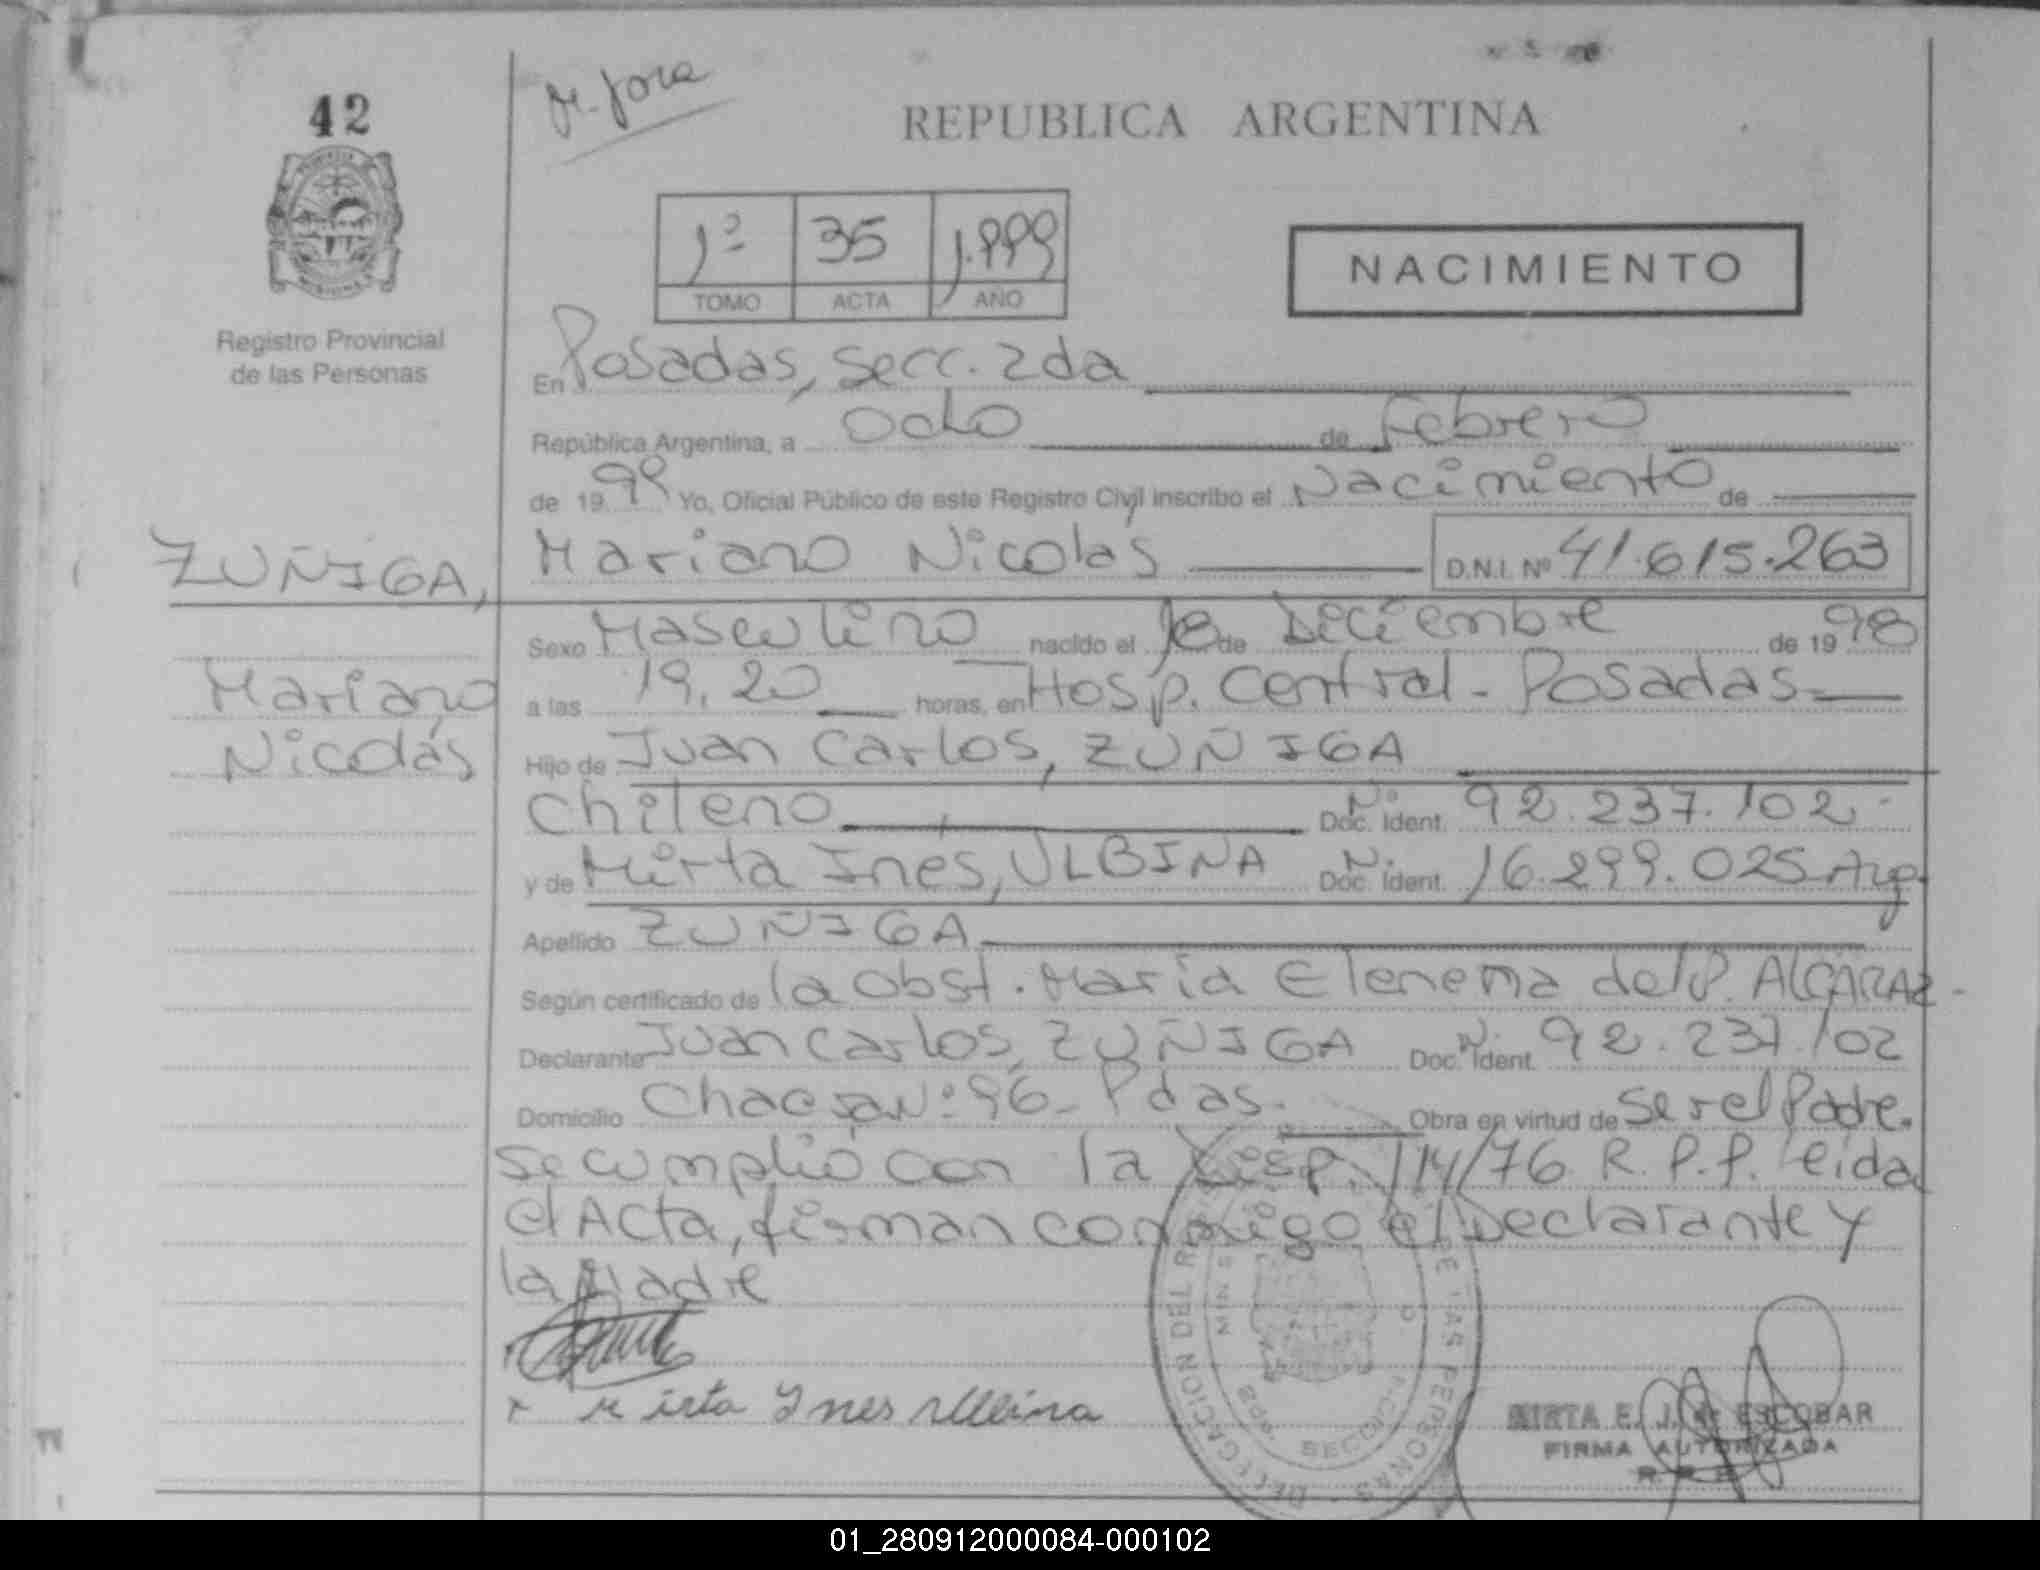 42
REPUBLICA ARGENTINA
1º 35 1.999
TOMO ACTA AÑO
NACIMIENTO
Registro Provincial
de las Personas
En Posadas, Secc. 2da
República Argentina, a ocho de Febrero
de 1999 Yo, Oficial Público de este Registro Civil inscribo el Nacimiento de
ZUÑIGA, Mariano Nicolás D.N.I. Nº 41.615.263
Mariano
Nicolás
Sexo Masculino nacido el de Diciembre de 1998
a las 19,20 horas, en Hosp. Central - Posadas
Hijo de Juan Carlos, ZUÑIGA
Chileno Nº Doc. Ident. 92.237.102
y de Mirta Ines, ULBINA Nº Doc. Ident. 16.299.025 Arg
Apellido ZUÑIGA
Según certificado de la obst. María del P. ALCARAZ
Declarante Juan Carlos, ZUÑIGA Nº Doc. Ident. 92.237.102
Domicilio Chacra Nº 96 - Pdas. Obra en virtud de ser el Padre.
se cumplió con la Disp. 114/76 R.P.P. leida
el Acta, firman conmigo el Declarante y
la Madre
x Mirta Ines Ulbina
DELEGACION DEL DE LAS PERSONAS
MIRTA E. J. de ESCOBAR
FIRMA AUTORIZADA
01_280912000084-000102